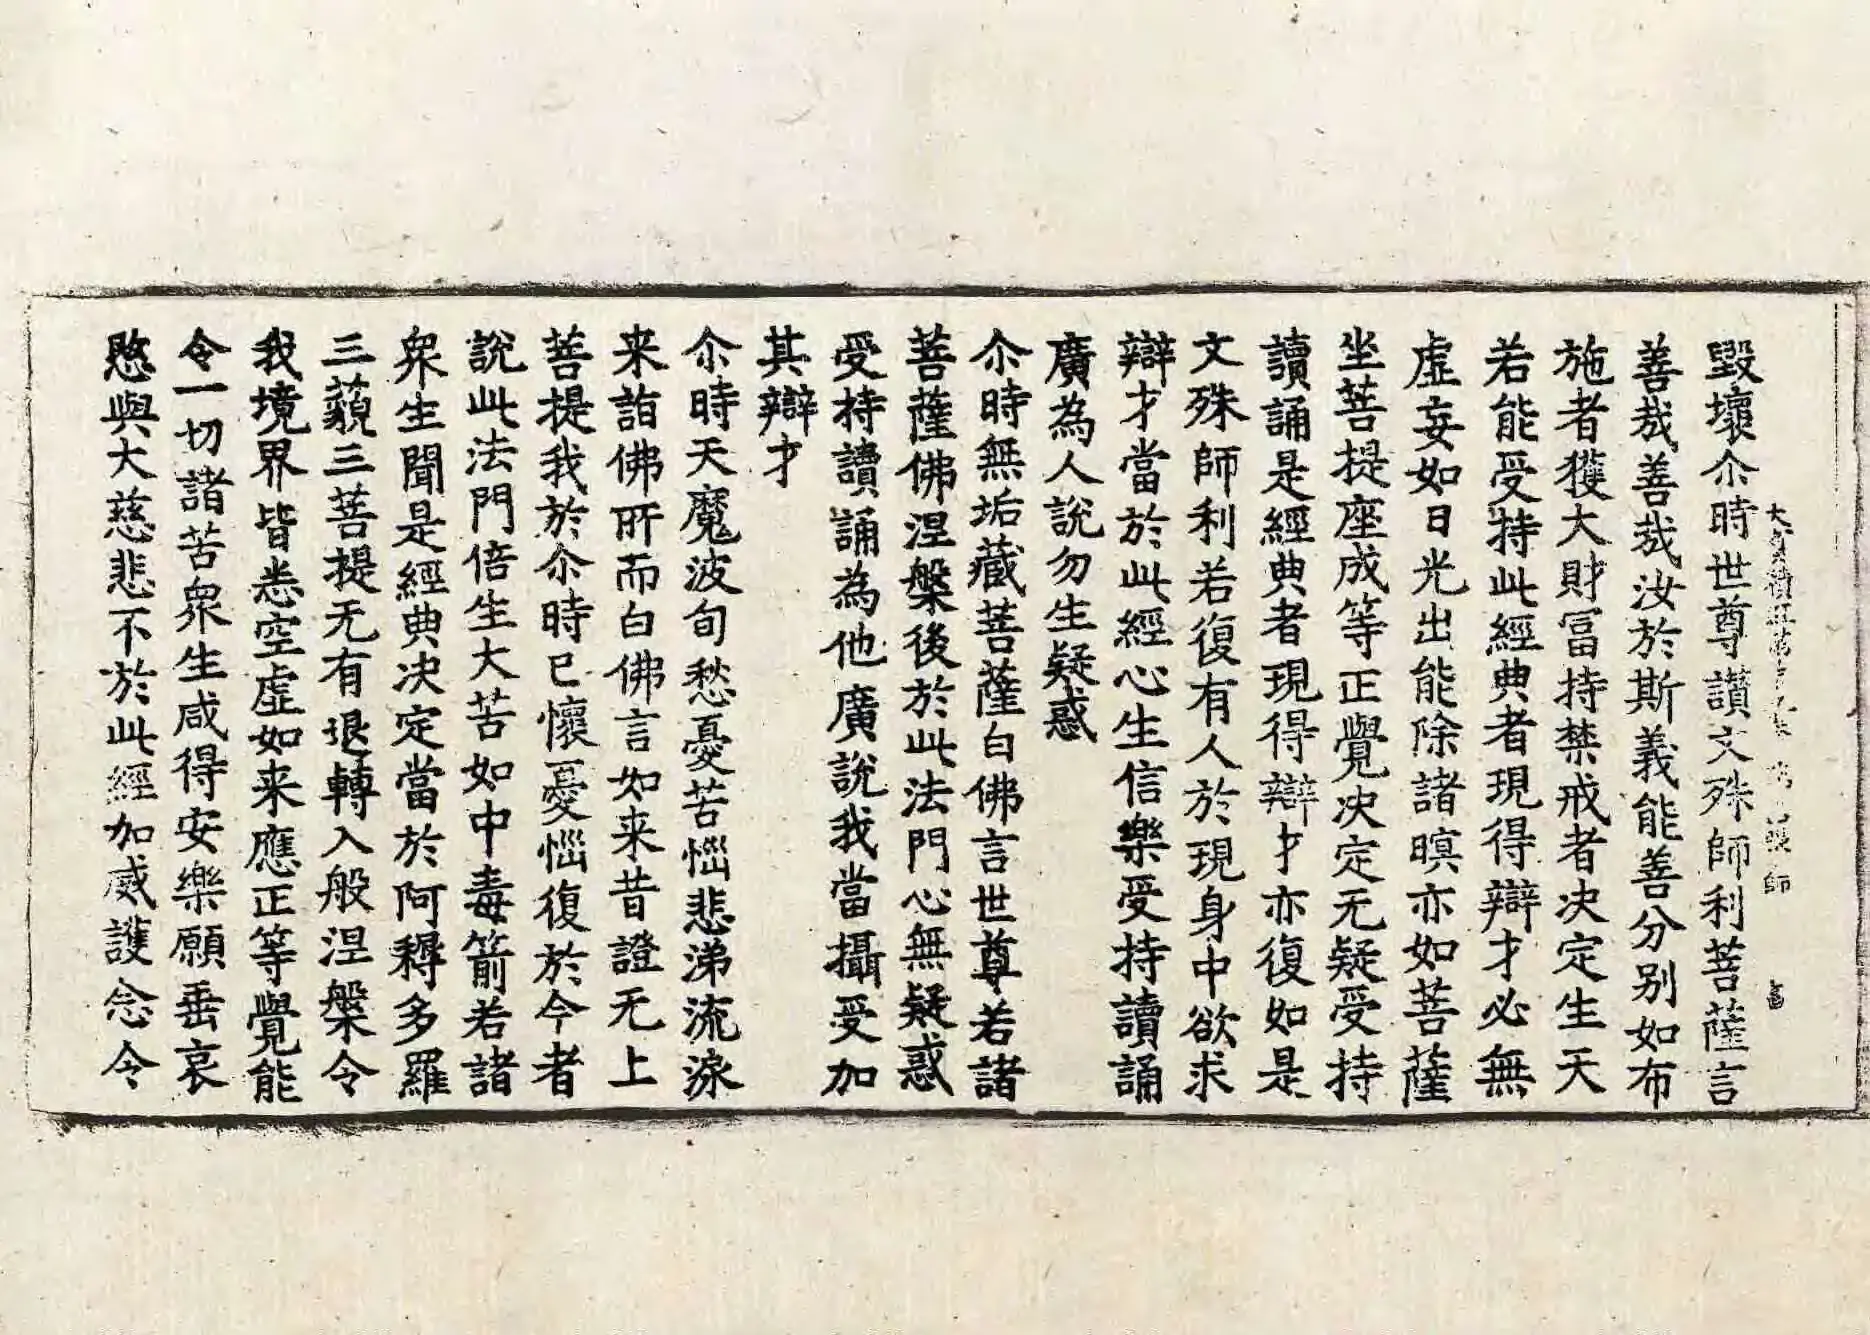 毀壞尒時世尊讃文殊師利菩薩言
善㢤善㢤汝於斯義能善分别如布
施者獲大財冨持禁戒者决定生天
若能受持此經典者現得辯才必無
虚妄如日光出能除諸暝亦如菩薩
坐菩提座成等正覺决定无疑受持
讀誦是經典者現得辯才亦復如是
文殊師利若復有人於現身中欲求
辯才當於此經心生信樂受持讀誦
廣為人說勿生疑惑
尒時無垢藏菩薩白佛言世尊若諸
菩薩佛涅槃後於此法門心無疑惑
受持讀誦為他廣說我當攝受加
其辯才
尒時天魔波旬愁憂苦惱悲涕流淚
来詣佛所而白佛言如来昔證无上
菩提我於尒時已懷憂惱復於今者
說此法門倍生大苦如中毒箭若諸
衆生聞是經典决定當於阿耨多羅
三藐三菩提无有退轉入般涅槃令
我境界皆悉空虚如来應正等覺能
令一切諸苦衆生咸得安樂願垂哀
愍與大慈悲不於此經加威護念令